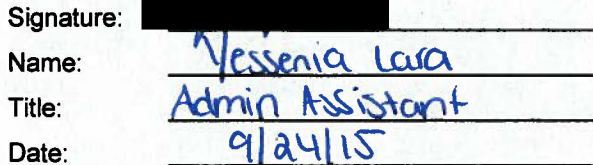 Signature:
Name: Yessenia Lara
Title: Admin Assistant
Date: 9/24/15